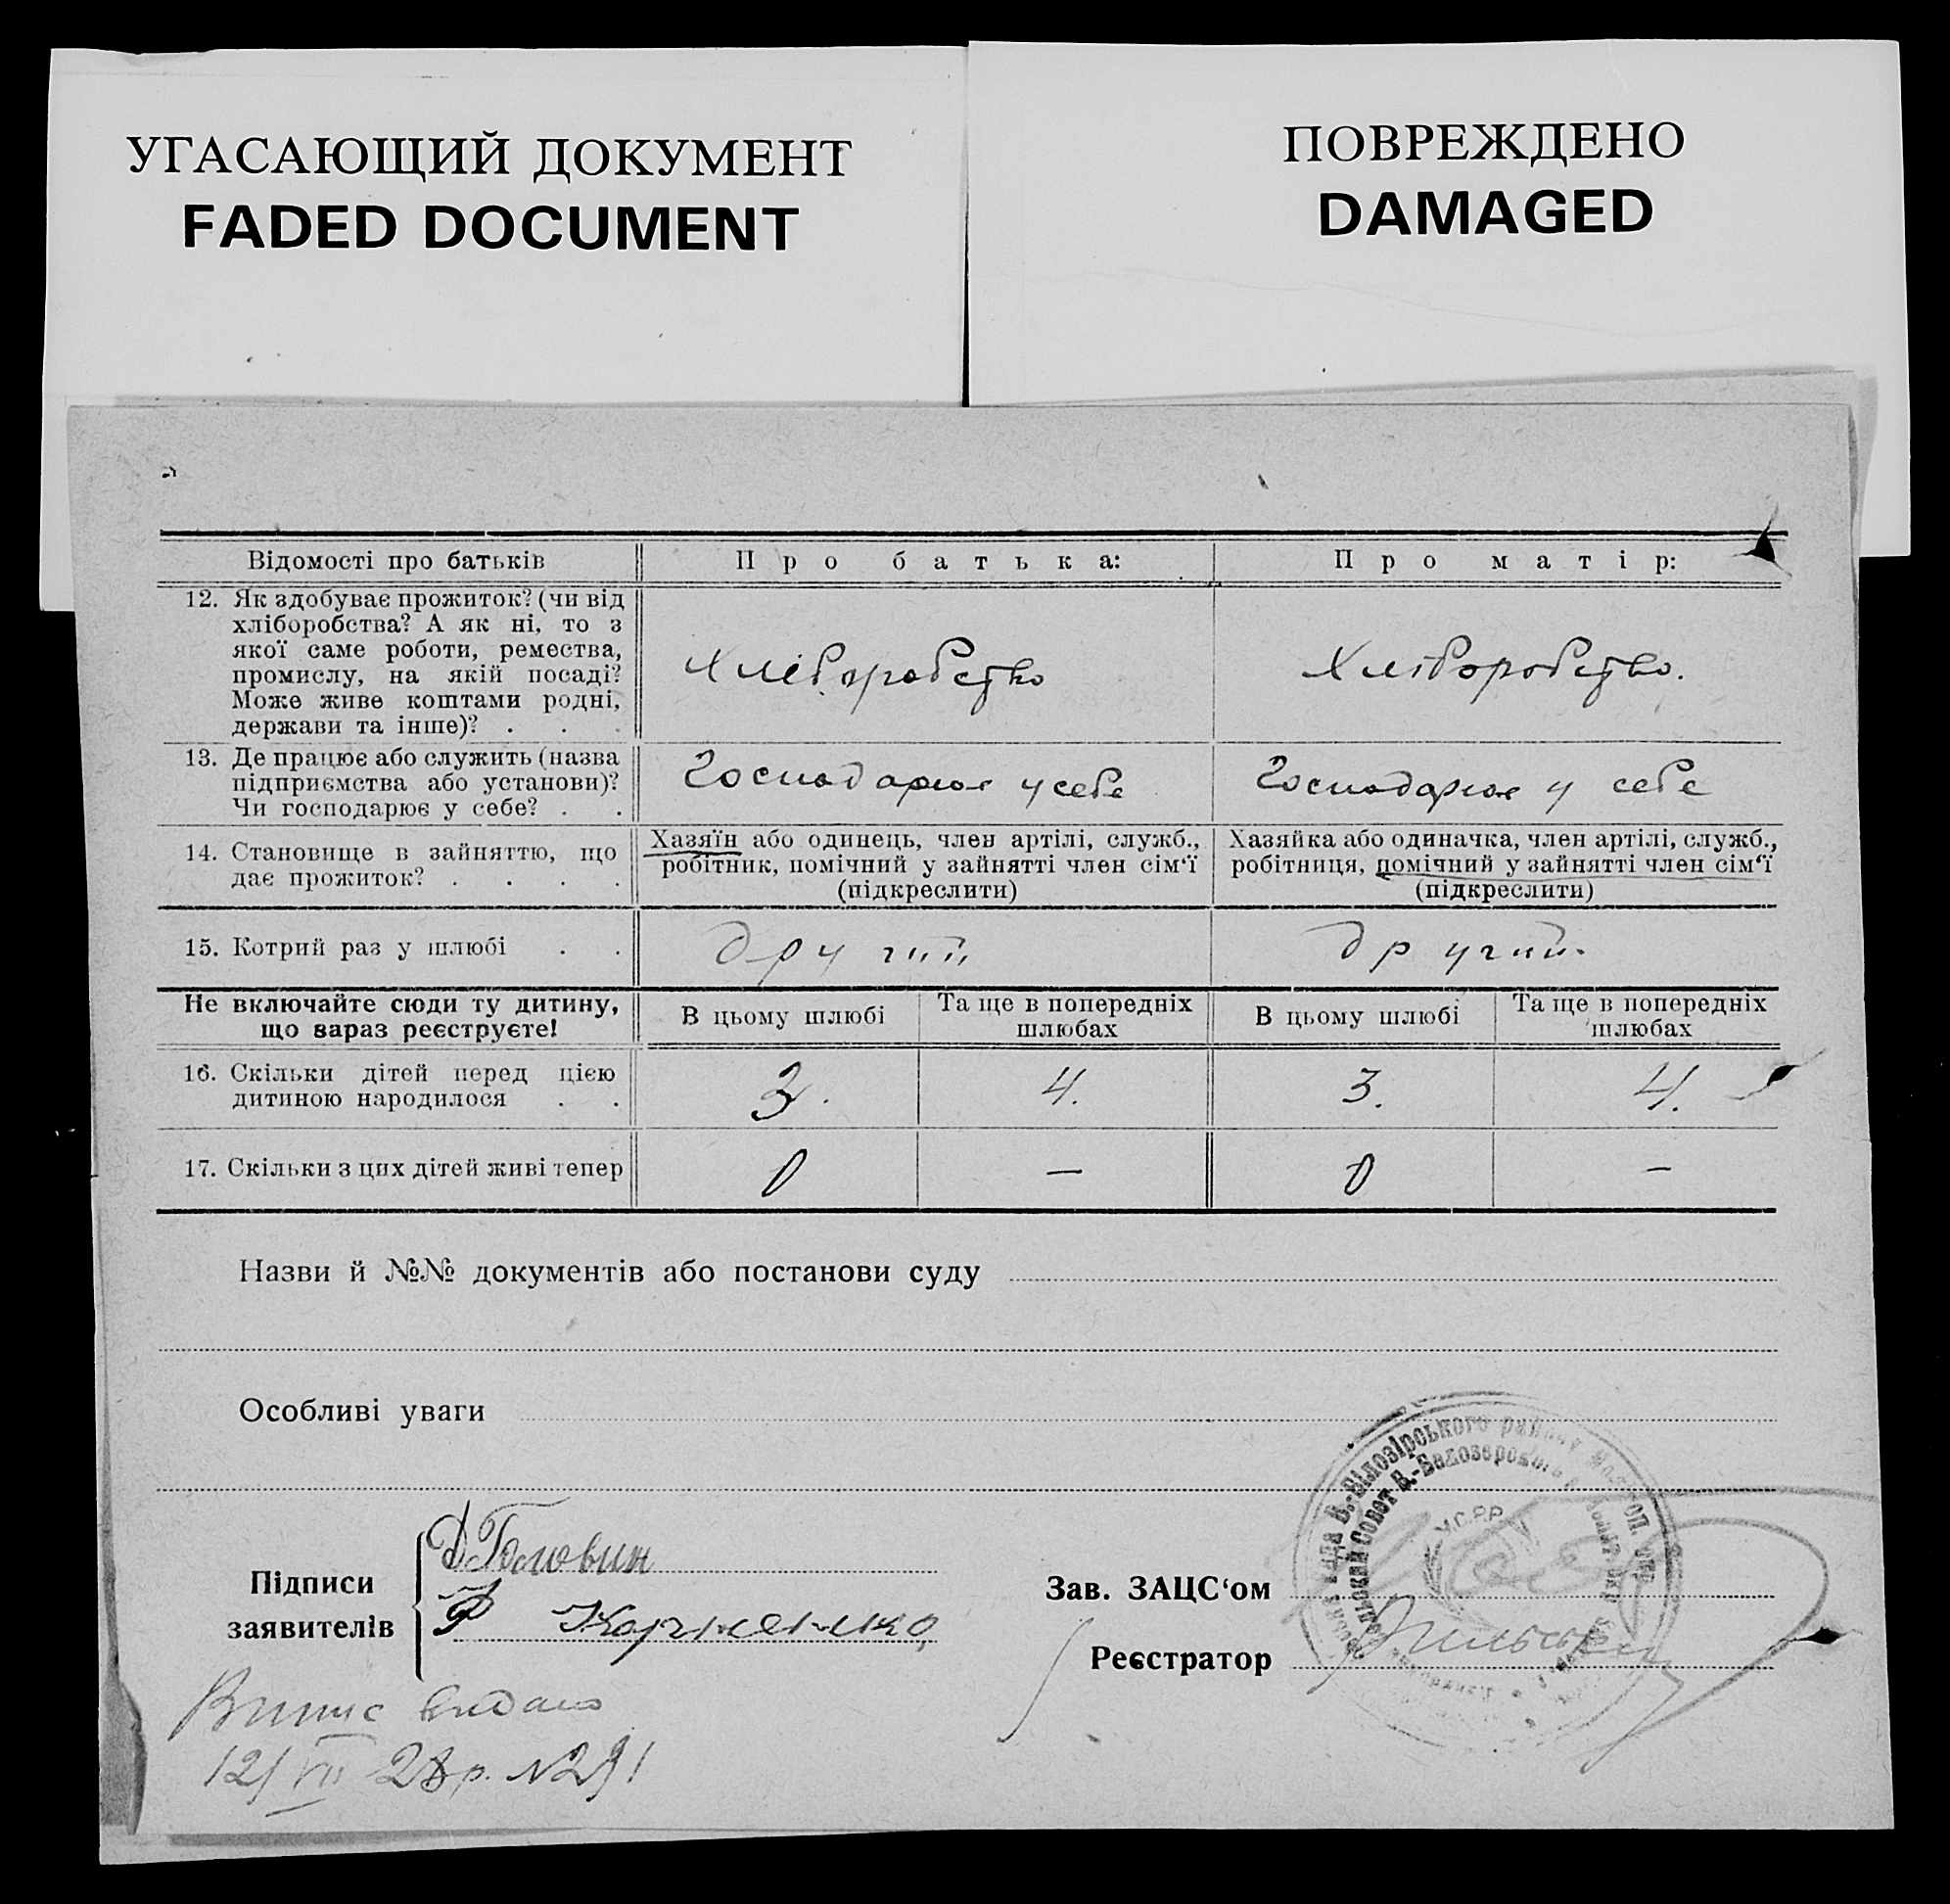 УГАСАЮЩИЙ ДОКУМЕНТ
FADED DOCUMENT
ПОВРЕЖДЕНО
DAMAGED
Відомості про батьків
Про батька:
Про матір:
12. Як здобуває прожиток? (чи від
хліборобства? А як ні, то з
якої саме роботи, ремества,
промислу, на якій посаді?
Може живе коштами родні,
держави та інше)? . . .
Хліборобство
Хліборобство.
13. Де працює або служить (назва
підприємства або установи)?
Чи господарює у себе? . .
Господарює у себе
Господарює у себе
14. Становище в зайняттю, що
дає прожиток? . . . .
Хазяїн або одинець, член артілі, служб.,
робітник, помічний у зайнятті член сім‘ї
(підкреслити)
Хазяйка або одиначка, член артілі, служб.,
робітниця, помічний у зайнятті член сім‘ї
(підкреслити)
15. Котрий раз у шлюбі . .
другий
другий.
Не включайте сюди ту дитину,
що зараз реєструєте!
В цьому шлюбі
Та ще в попередніх
шлюбах
В цьому шлюбі
Та ще в попередніх
шлюбах
16. Скільки дітей перед цією
дитиною народилося . .
3.
4.
3.
4.
17. Скільки з цих дітей живі тепер
0
—
0
—
Назви й №№ документів або постанови суду
Особливі уваги
Підписи
заявителів
Д Головин
Ф Корниенко
Зав. ЗАЦС‘ом
Реєстратор
В.-Білозірського району
Совет В.-Белозерского
У.С.Р.Р.
Випис видано
12/VII 28 р. №291